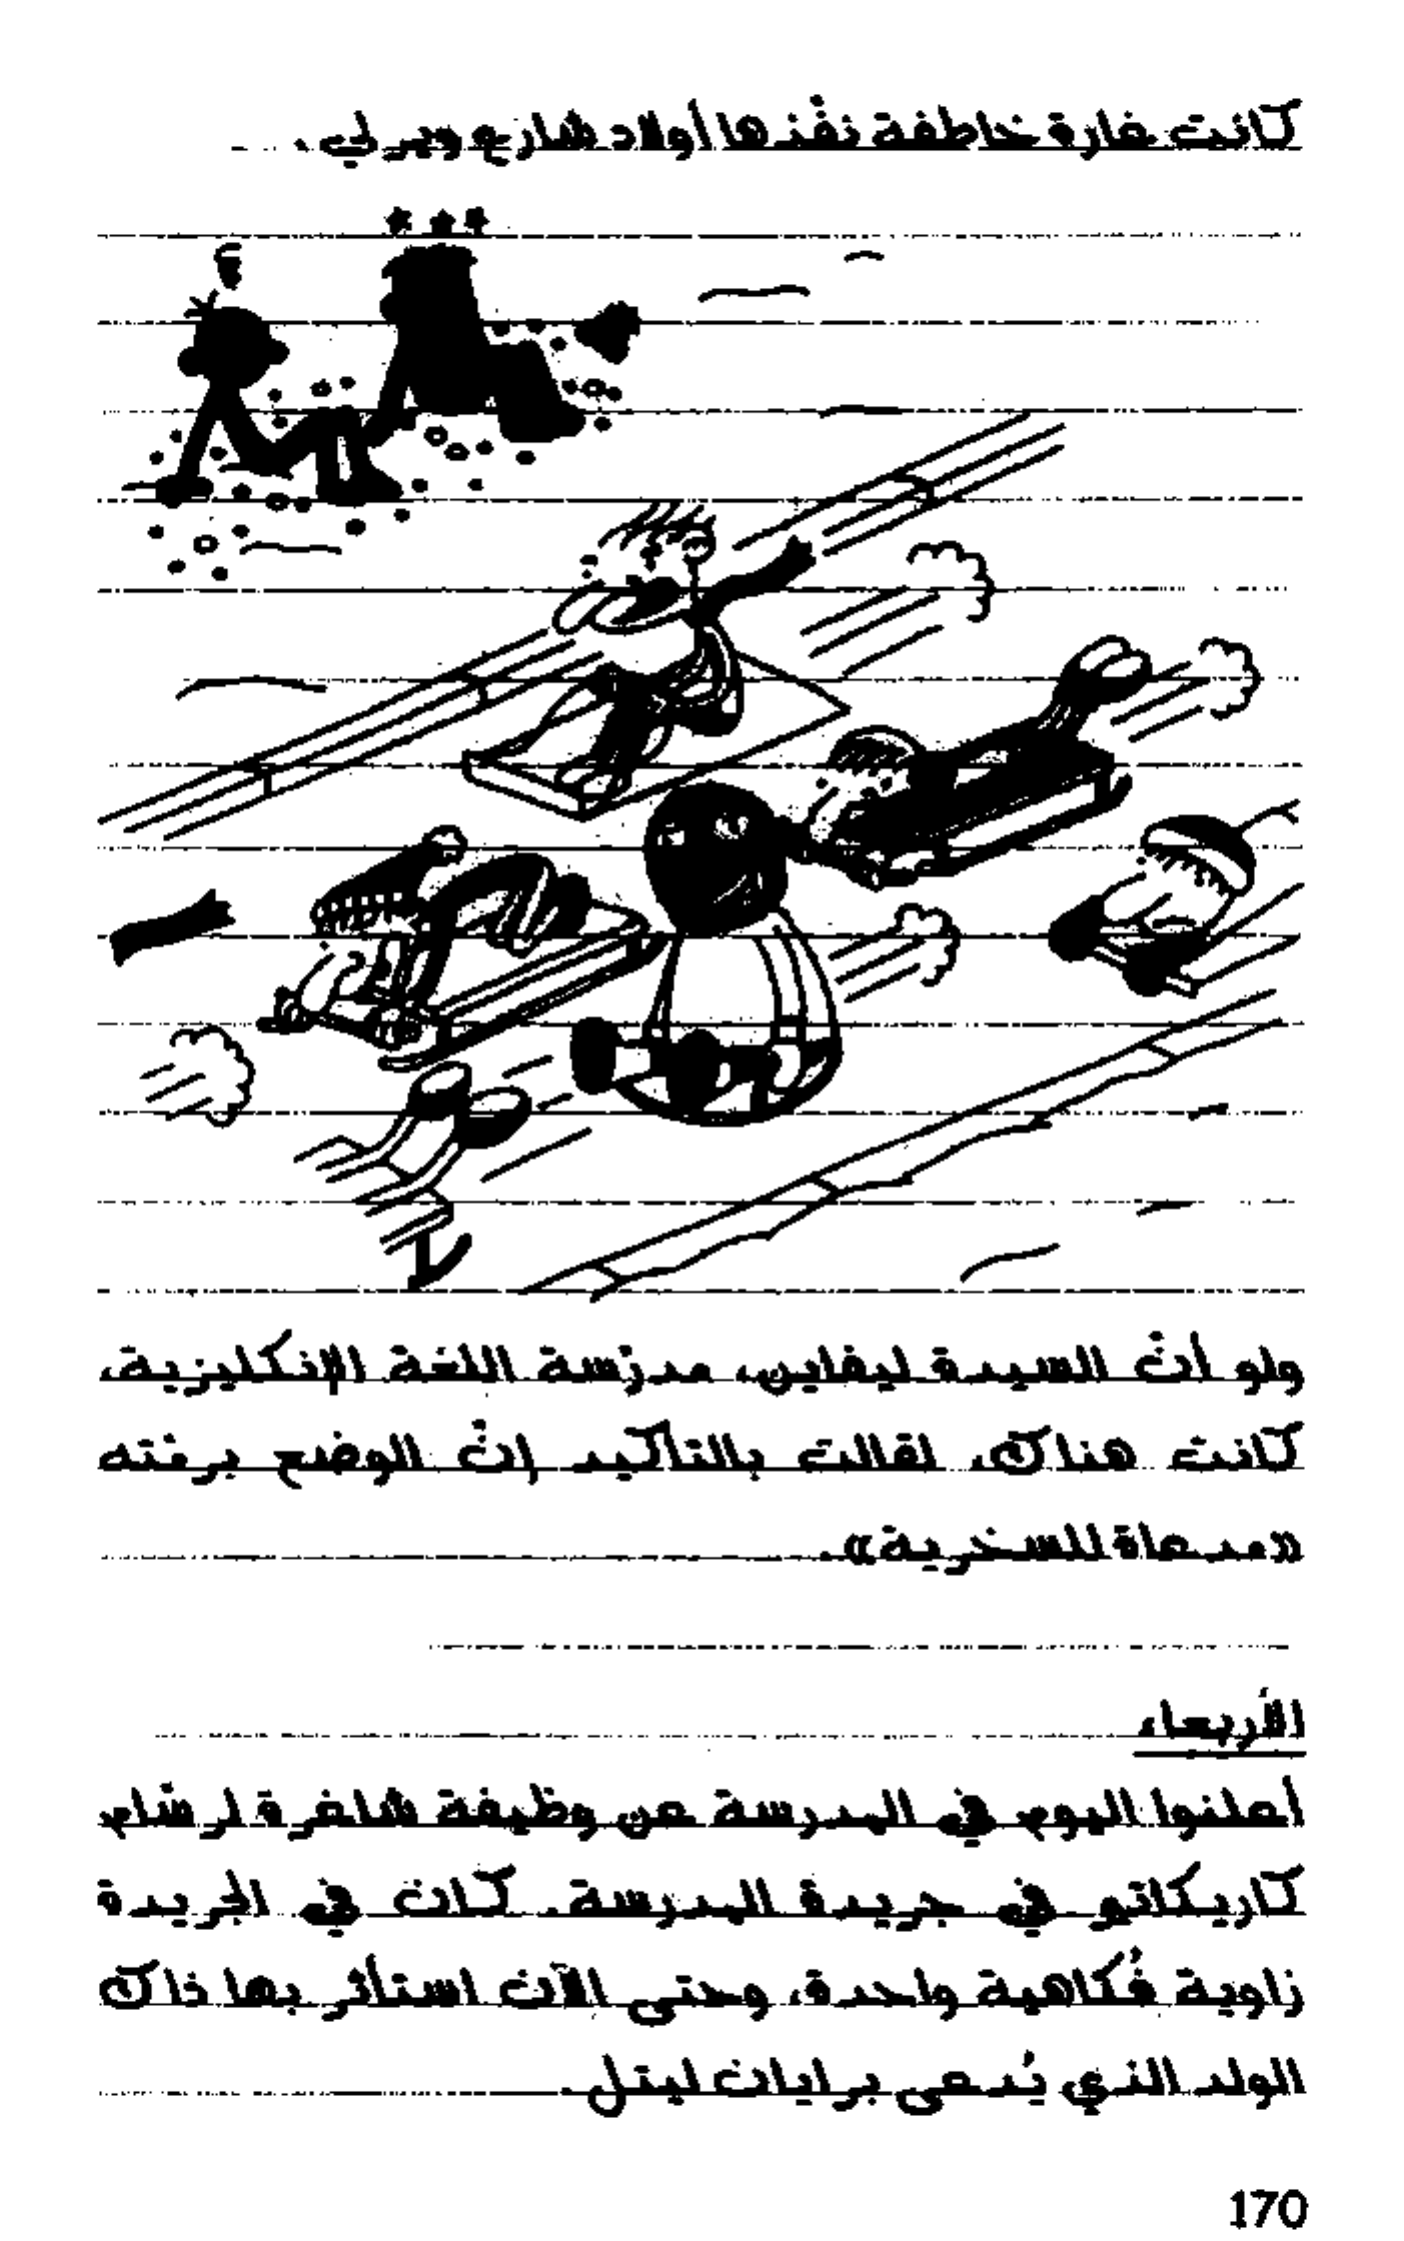 كانت غارة خاطفة نفّذها أولاد شارع ويرلي.
ولو أنّ السيدة ليفاين، مدرّسة اللغة الإنكليزية،
كانت هناك، لقالت بالتأكيد إنّ الوضع برمّته
«مدعاة للسخرية».
الأربعاء
أعلنوا اليوم في المدرسة عن وظيفة شاغرة لرسّام
كاريكاتو في جريدة المدرسة. كان في الجريدة
زاوية فُكاهية واحدة، وحتى الآن استأثر بها ذاك
الولد الذي يُدعى برايان ليتل.
170